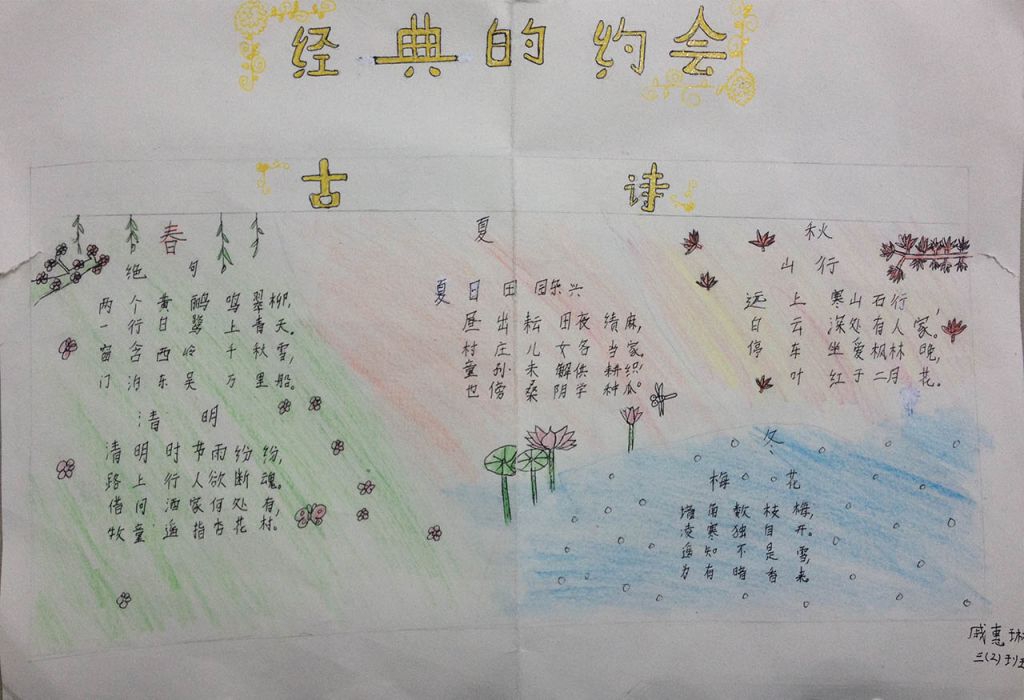 经典的约会
古诗
春
绝句
两个黄鹂鸣翠柳,
一行白鹭上青天。
窗含西岭千秋雪,
门泊东吴万里船。
清明
清明时节雨纷纷,
路上行人欲断魂。
借问酒家何处有,
牧童遥指杏花村。
夏
夏日田园杂兴
昼出耘田夜绩麻,
村庄儿女各当家。
童孙未解供耕织,
也傍桑阴学种瓜。
秋
山行
远上寒山石行,
白云深处有人家。
停车坐爱枫林晚,
叶红于二月花。
冬
梅花
墙角数枝梅,
凌寒独自开。
遥知不是雪,
为有暗香来
戚惠琳
三(2)班